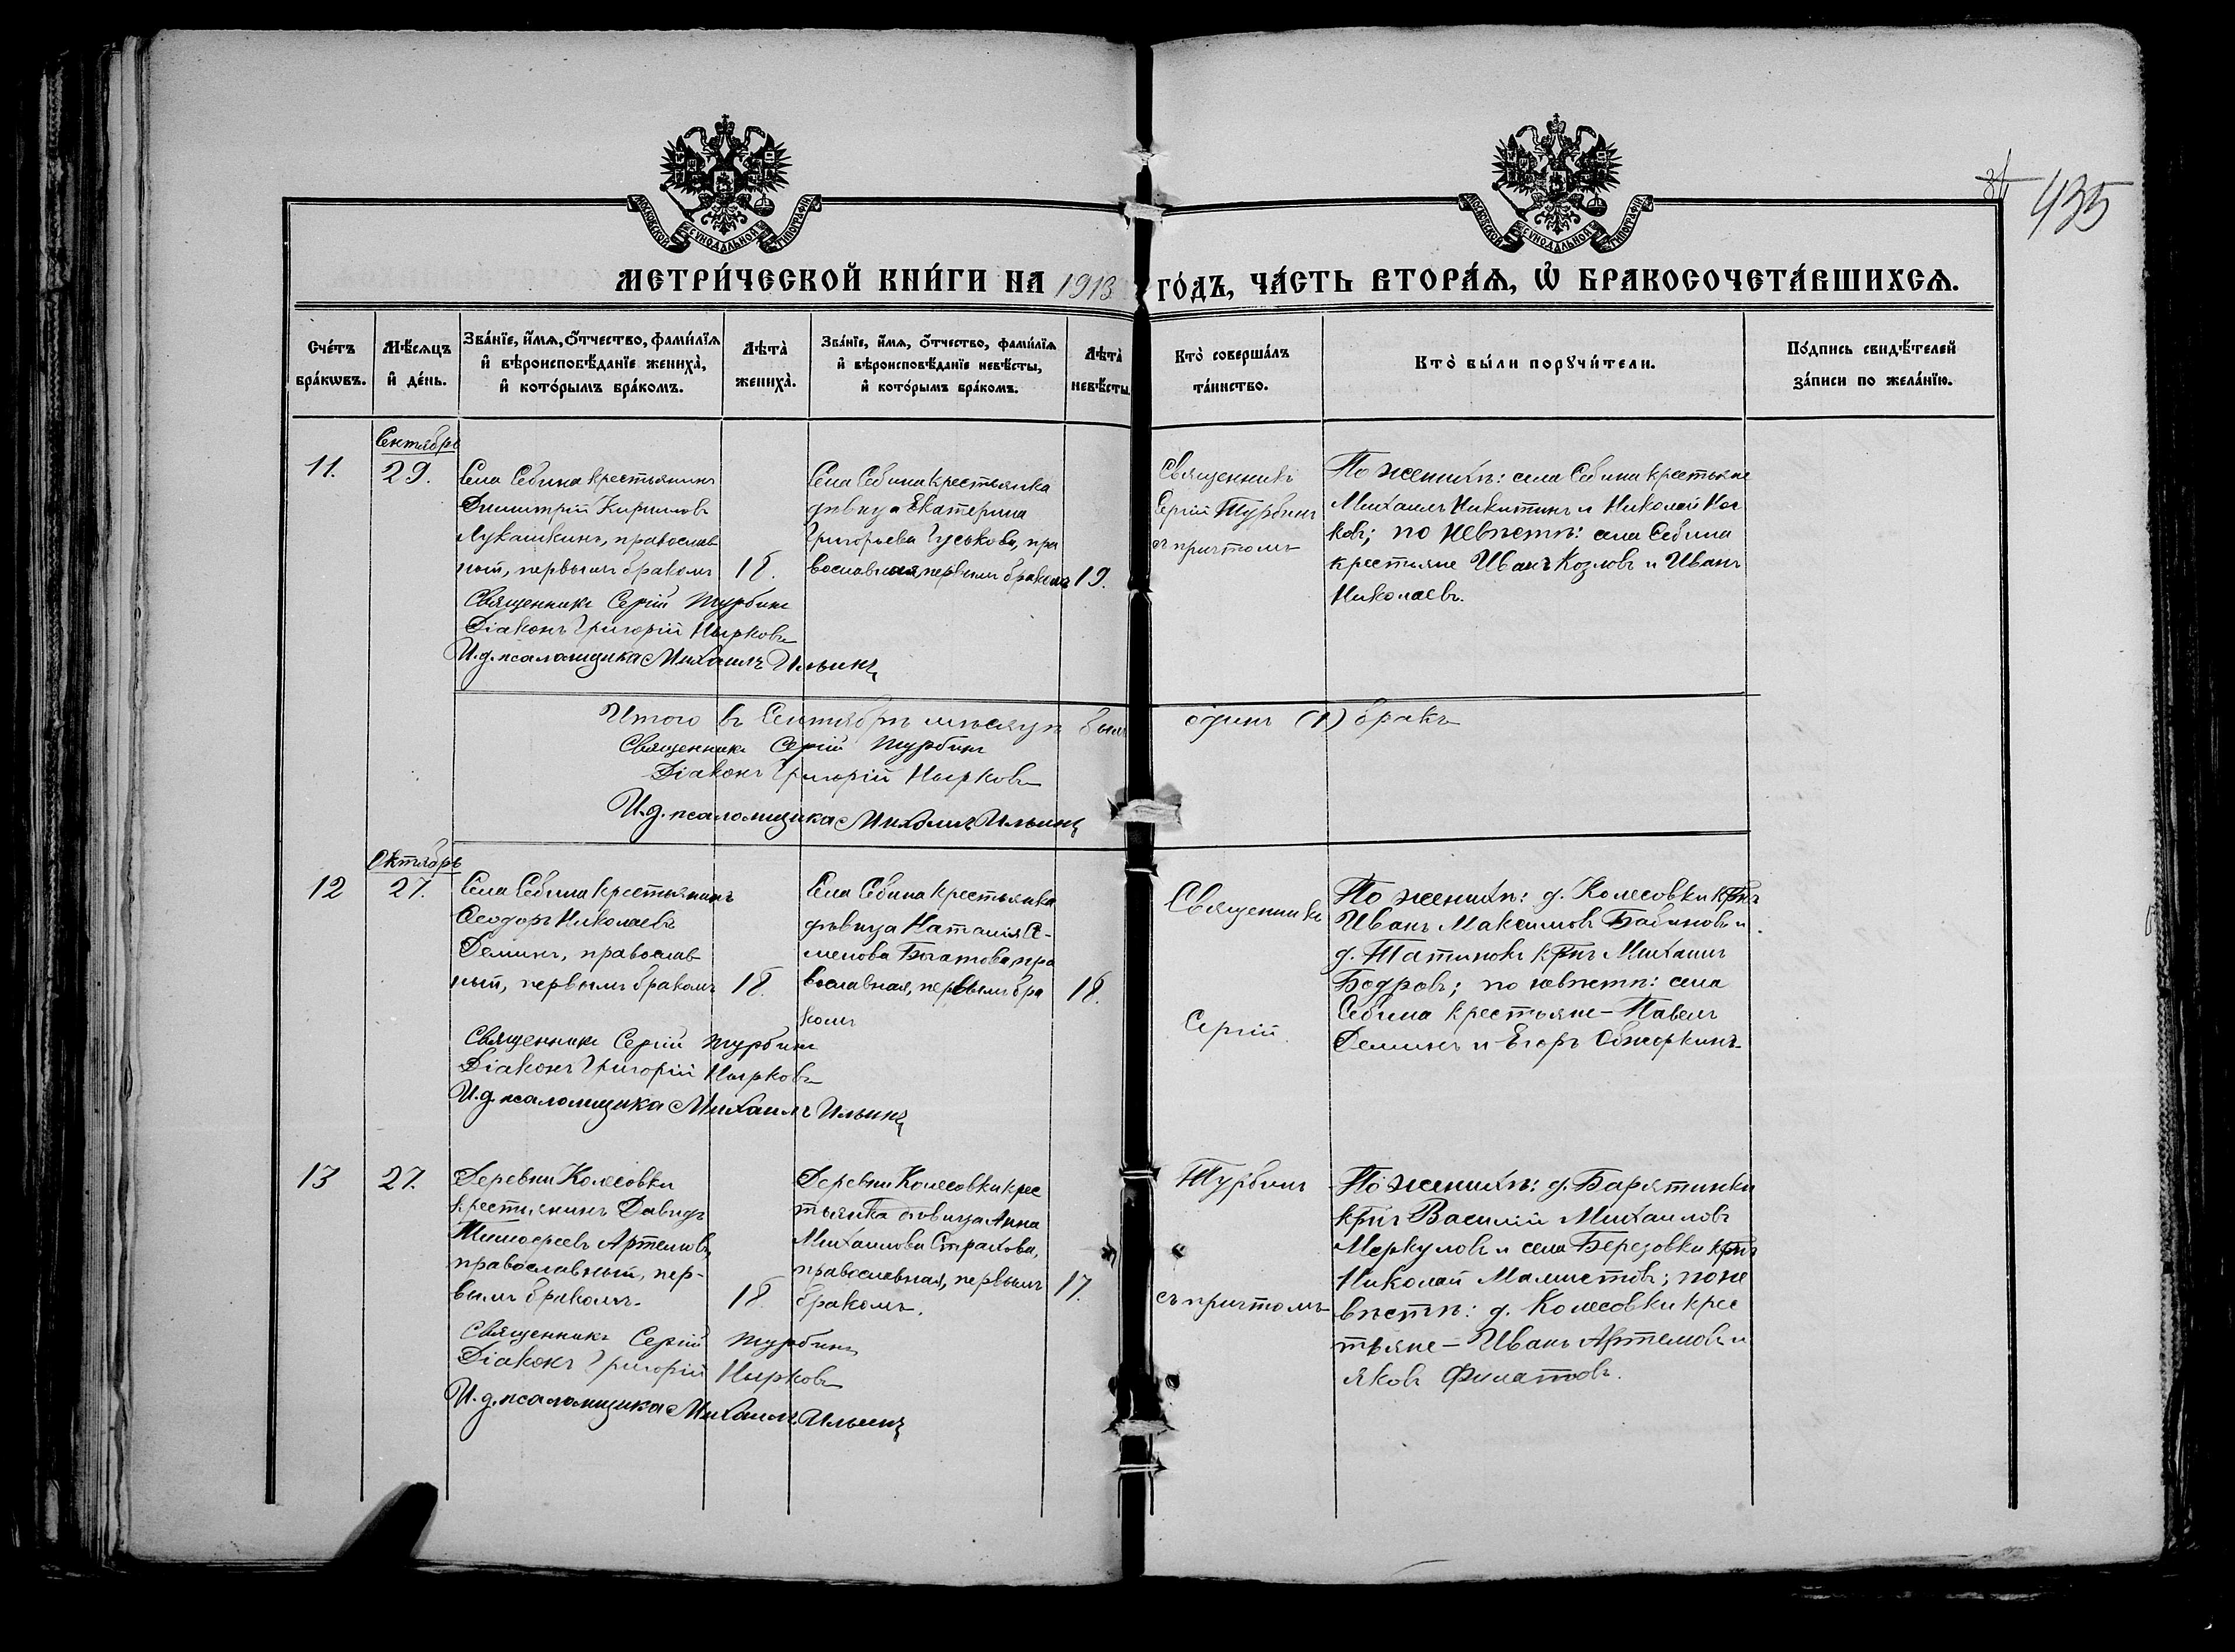 435
МОСКОВСКОЙ СУНОДАЛЬНОЙ ТИПОГРАФІИ
МОСКОВСКОЙ СУНОДАЛЬНОЙ ТИПОГРАФІИ
МЕТРИ́ЧЕСКОЙ КНИ́ГИ НА 1913 ГО́ДЪ, ЧА́СТЬ ВТОРА́Ѧ, Ѡ҆ БРАКОСОЧЕТА́ВШИХСѦ.
Сче́тъ
бра́кѡвъ.
Мѣ́сѧцъ
и҆ де́нь.
Зва́нїе, и҆́мѧ, ѻ҆́тчество, фами́лїѧ
и҆ вѣроисповѣ́данїе жениха̀,
и҆ кото́рымъ бра́комъ.
Лѣта̀
жениха̀.
Зва́нїе, и҆́мѧ, ѻ҆́тчество, фами́лїѧ
и҆ вѣроисповѣ́данїе невѣ́сты,
и҆ кото́рымъ бра́комъ.
Лѣта̀
невѣ́сты.
Кто̀ соверша́лъ
та́инство.
Кто̀ бы́ли порꙋчи́тели.
По́дпись свидѣ́телей
за́писи по жела́нїю.
Сентябрь
11.
29.
Села Себина крестьянинъ
Димитрій Кириловъ
Лукашкинъ, православ
ный, первымъ бракомъ
18.
Села Себина крестьянка
дѣвица Екатерина
Григорьева Гуськова, пра
вославная, первымъ бракомъ
19.
Священникъ
Сергій Турбинъ
съ причтомъ
По женихѣ: села Себина крестьяне
Михаилъ Никитинъ и Николай Нос
ковъ; по невѣстѣ: села Себина
крестьяне Иванъ Козловъ и Иванъ
Николаевъ.
Священникъ Сергій Турбинъ
Діаконъ Григорій Нырковъ
И.д. псаломщика Михаилъ Ильинъ
Итого въ Сентябрѣ мѣсяцѣ былъ одинъ (1) бракъ
Священникъ Сергій Турбинъ
Діаконъ Григорій Нырковъ
И.д. псаломщика Михаилъ Ильинъ
Октябрь
12
27.
Села Себина крестьянинъ
Ѳеодоръ Николаевъ
Деминъ, православ
ный, первымъ бракомъ
18.
Села Себина крестьянка
дѣвица Наталія С-
менова Богатова, пра
вославная, первымъ бра
комъ
18.
Священникъ
Сергій
По женихѣ: д. Колесовки кр-нъ
Иванъ Максимовъ Бабановъ и
д. Татинокъ кр-нъ Михаилъ
Бодровъ; по невѣстѣ: села
Себина крестьяне – Павелъ
Деминъ и Егоръ Обжоркинъ
Священникъ Сергій Турбинъ
Діаконъ Григорій Нырковъ
И.д. псаломщика Михаилъ Ильинъ
13
27.
Деревни Колесовки
крестьянинъ Давидъ
Тимоѳеевъ Артемовъ,
православный, пер-
вымъ бракомъ.
18.
Деревни Колесовки крес
тьянка дѣвица Анна
Михаилова Страхова,
православная, первымъ
бракомъ.
17.
Турбинъ
съ причтомъ
По женихѣ: д. Барятинки
кр-нъ Василій Михаиловъ
Меркуловъ и села Березовки кр-нъ
Николай Малистовъ; по не
вѣстѣ: д. Колесовки крес
тьяне – Иванъ Артемовъ и
Яковъ Филатовъ.
Священникъ Сергій Турбинъ
Діаконъ Григорій Нырковъ
И.д. псаломщика Михаилъ Ильинъ